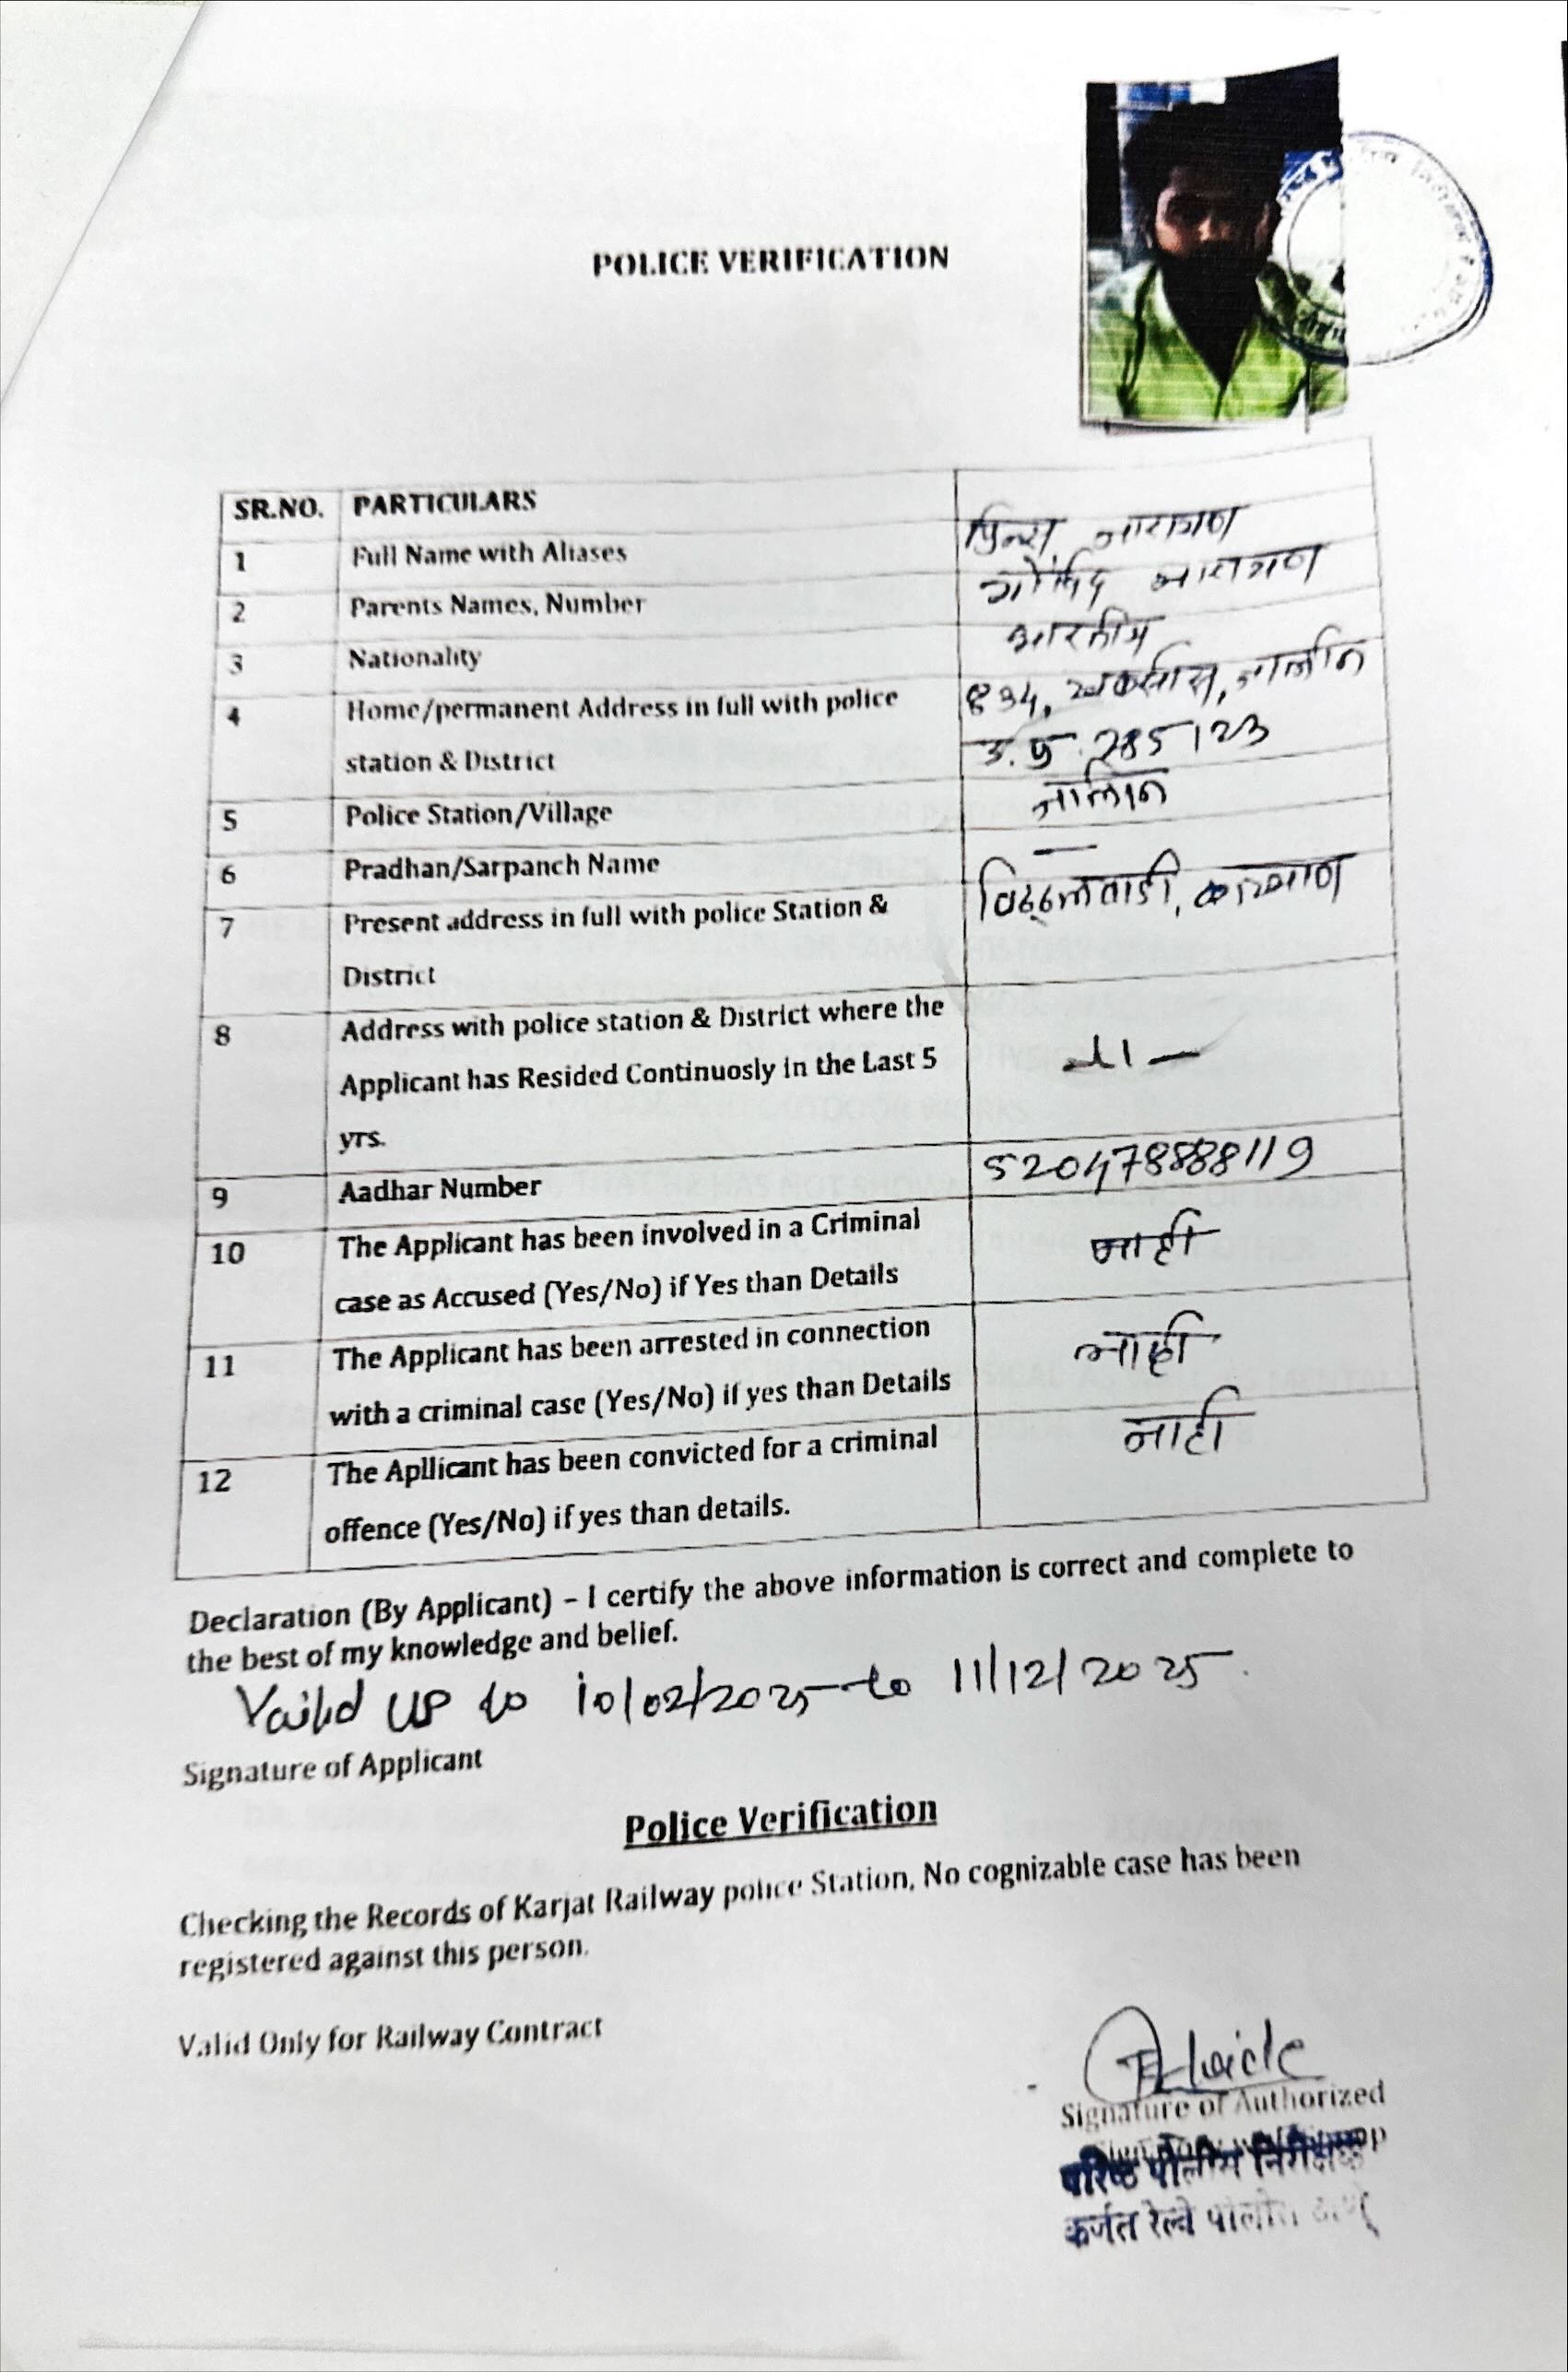 POLICE VERIFICATION
SR.NO. PARTICULARS
1 Full Name with Aliases प्रिन्स नारायण
2 Parents Names, Number गोविंद नारायण
3 Nationality भारतीय
4 Home/permanent Address in full with police 834, जालौन
station & District उ.प्र. 285123
5 Police Station/Village जालौन
6 Pradhan/Sarpanch Name —
7 Present address in full with police Station & विठ्ठलवाडी, कल्याण
District
8 Address with police station & District where the
Applicant has Resided Continuosly in the Last 5 -11-
yrs.
9 Aadhar Number 520478888119
10 The Applicant has been involved in a Criminal नाही
case as Accused (Yes/No) if Yes than Details
11 The Applicant has been arrested in connection नाही
with a criminal case (Yes/No) if yes than Details
12 The Apllicant has been convicted for a criminal नाही
offence (Yes/No) if yes than details.
Declaration (By Applicant) – I certify the above information is correct and complete to
the best of my knowledge and belief.
Vailid UP to 10/02/2025 to 11/12/2025.
Signature of Applicant
Police Verification
Checking the Records of Karjat Railway police Station, No cognizable case has been
registered against this person.
Valid Only for Railway Contract
Signature of Authorized
वरिष्ठ पोलीस निरीक्षक
कर्जत रेल्वे पोलीस ठाणे